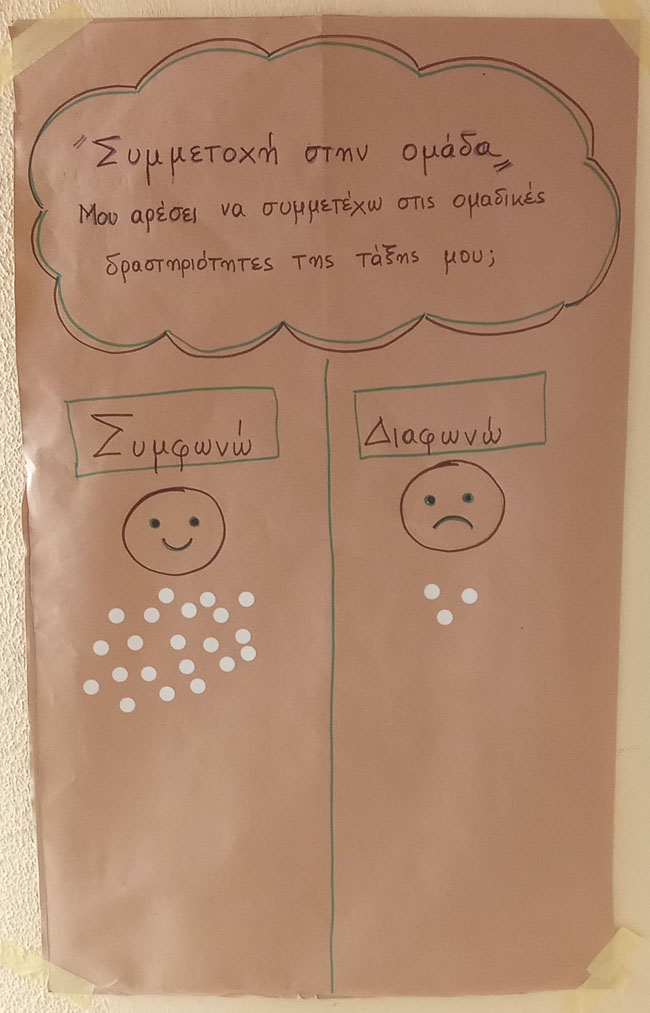 "Συμμετοχή στην ομάδα"
Μου αρέσει να συμμετέχω στις ομαδικές
δραστηριότητες της τάξης μου;
Συμφωνώ
Διαφωνώ